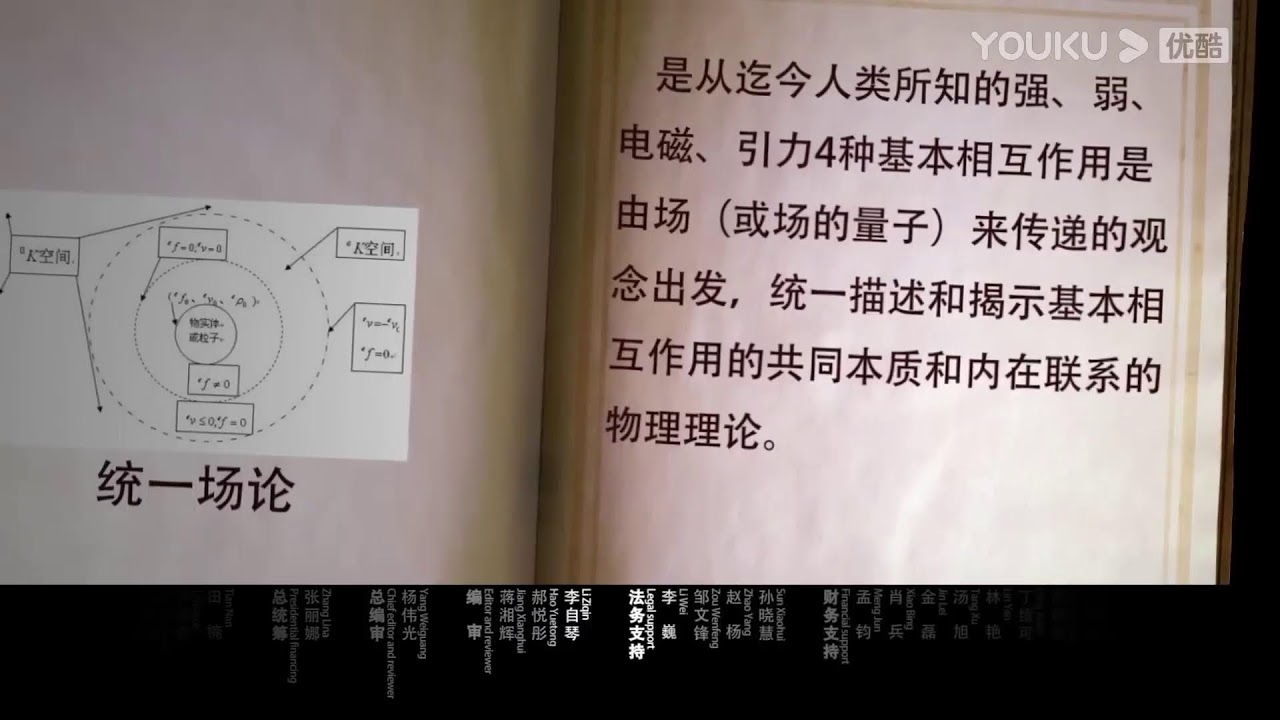 YOUKU 优酷
是从迄今人类所知的强、弱、
电磁、引力4种基本相互作用是
由场（或场的量子）来传递的观
念出发，统一描述和揭示基本相
互作用的共同本质和内在联系的
物理理论。
⁰K空间
ᵉf=0,ᵉv=0
ᵉK空间
物实体
或粒子
ᵉf=0
ᵉf≠0
ᵉv≤0,ᵉf=0
统一场论
总统筹
Presidential financing
张丽娜
Zhang Lina
总编审
Chief editor and reviewer
杨伟光
Yang Weiguang
编 审
Editor and reviewer
蒋湘辉
Jiang Xianghui
郝悦彤
Hao Yuetong
李自琴
Li Ziqin
法务支持
Legal support
李 巍
Li Wei
邹文锋
Zou Wenfeng
赵 杨
Zhao Yang
孙晓慧
Sun Xiaohui
财务支持
Financial support
孟 钧
Meng Jun
肖 兵
Xiao Bing
金 磊
Jin Lei
汤 旭
Tang Xu
林 艳
Lin Yan